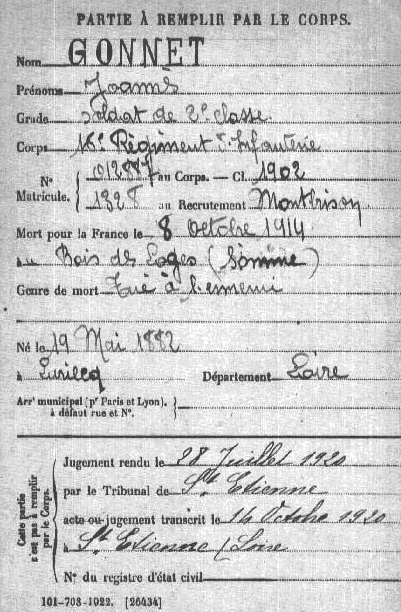 PARTIE À REMPLIR PAR LE CORPS.
Nom GONNET
Prénoms Joannès
Grade Soldat de 2e classe
Corps 16e Régiment d'Infanterie
N° Matricule. 012887 au Corps. — Cl. 1902
1328 au Recrutement Montbrison
Mort pour la France le 8 Octobre 1914
à au Bois des Loges (Somme)
Genre de mort Tué à l'ennemi
Né le 19 Mai 1882
à Luriecq Département Loire
Arrt municipal (pr Paris et Lyon).
à défaut rue et N°.
Cette partie n'est pas à remplir par le Corps.
Jugement rendu le 28 Juillet 1920
par le Tribunal de St Etienne
acte ou jugement transcrit le 14 Octobre 1920
à St Etienne (Loire
N° du registre d'état civil
101-708-1922. [26434]